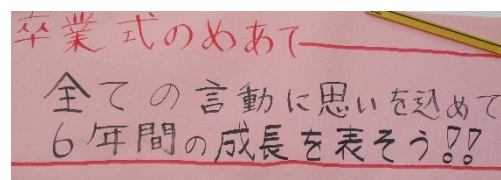 卒業式のめあて
全ての言動に思いを込めて
6年間の成長を表そう!!